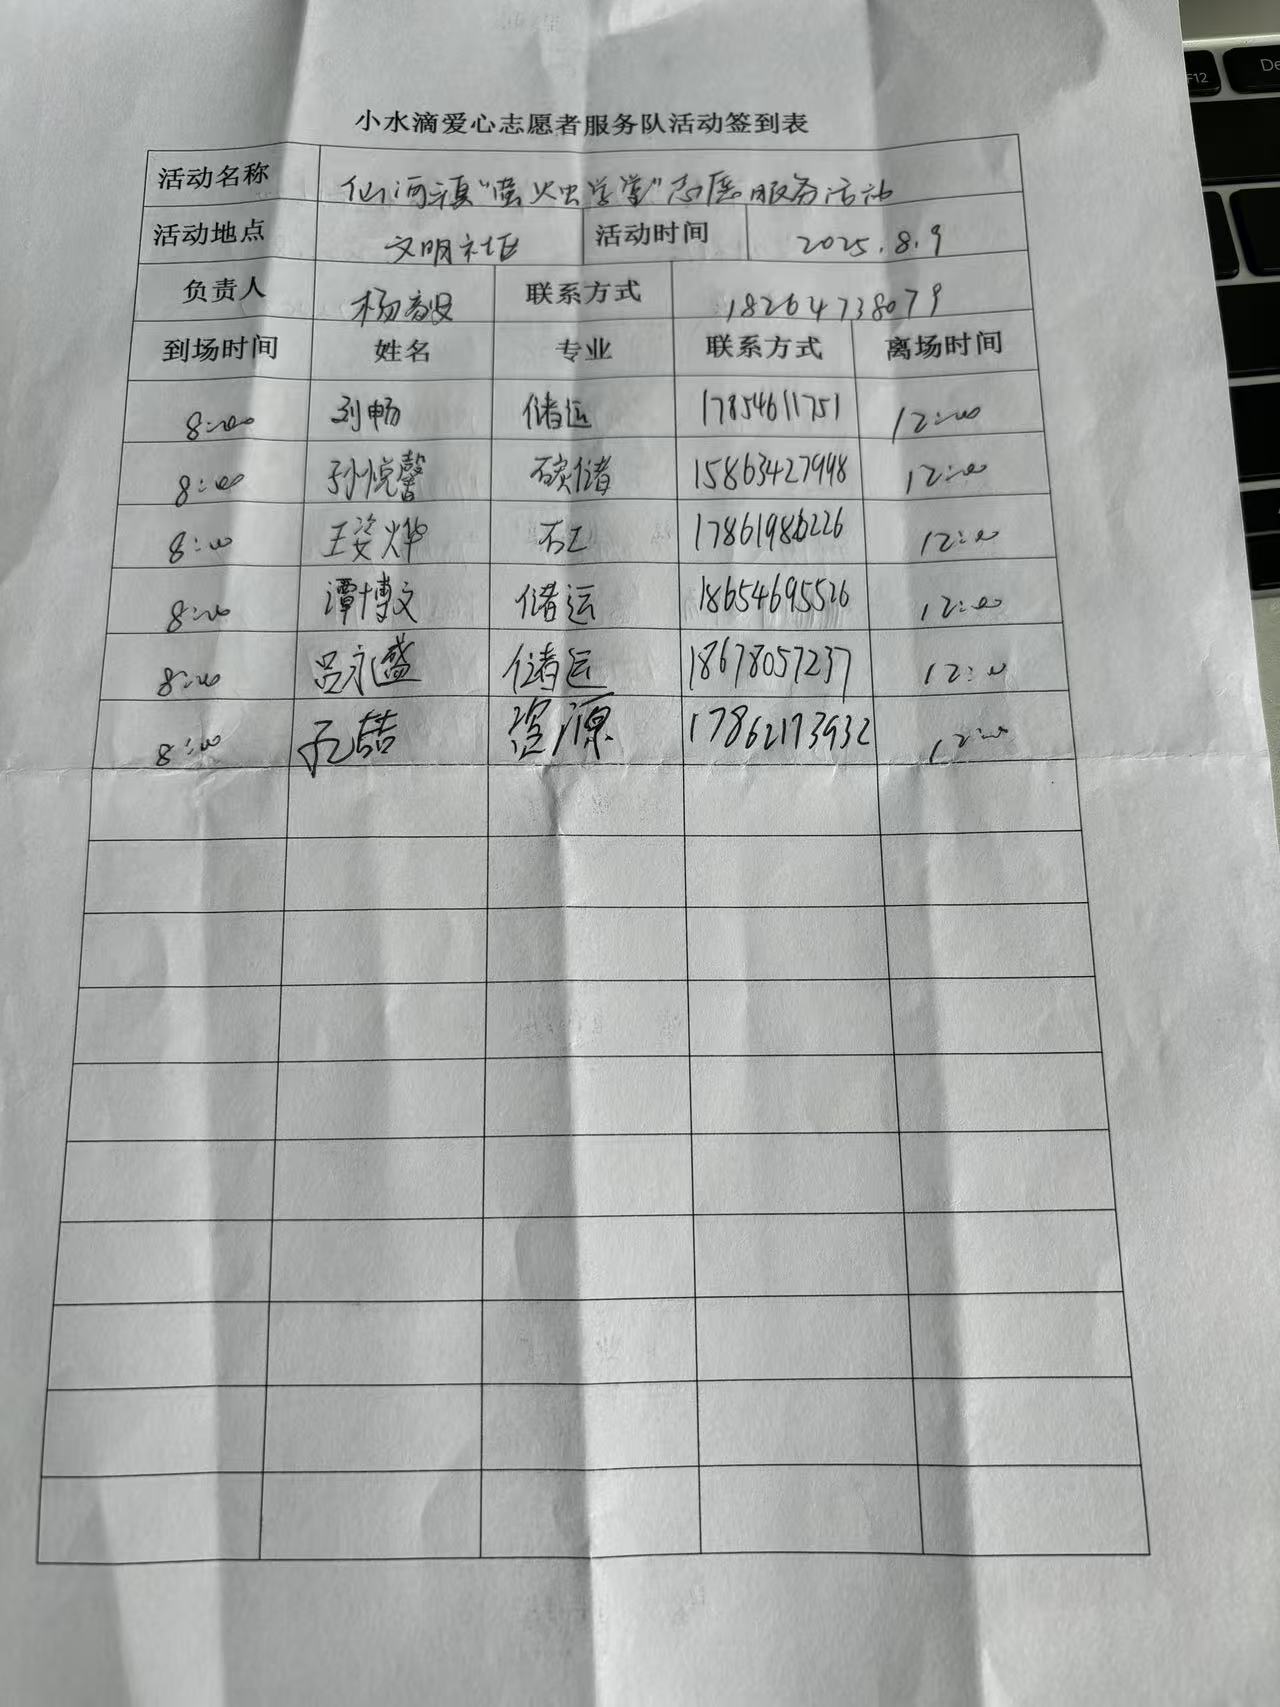 小水滴爱心志愿者服务队活动签到表
活动名称 仙河镇“萤火虫学堂”志愿服务活动
活动地点 文明社区 活动时间 2025.8.9
负责人 杨 联系方式 18264738079
到场时间 姓名 专业 联系方式 离场时间
8:00 刘畅 储运 17854611751 12:00
8:00 孙悦馨 碳储 15863427948 12:00
8:00 王姿烨 石工 17861986226 12:00
8:00 谭博文 储运 18654695526 12:00
8:00 吕永盛 储运 18678057237 12:00
8:00 孔喆 资源 17862173932 12:00
F12
De